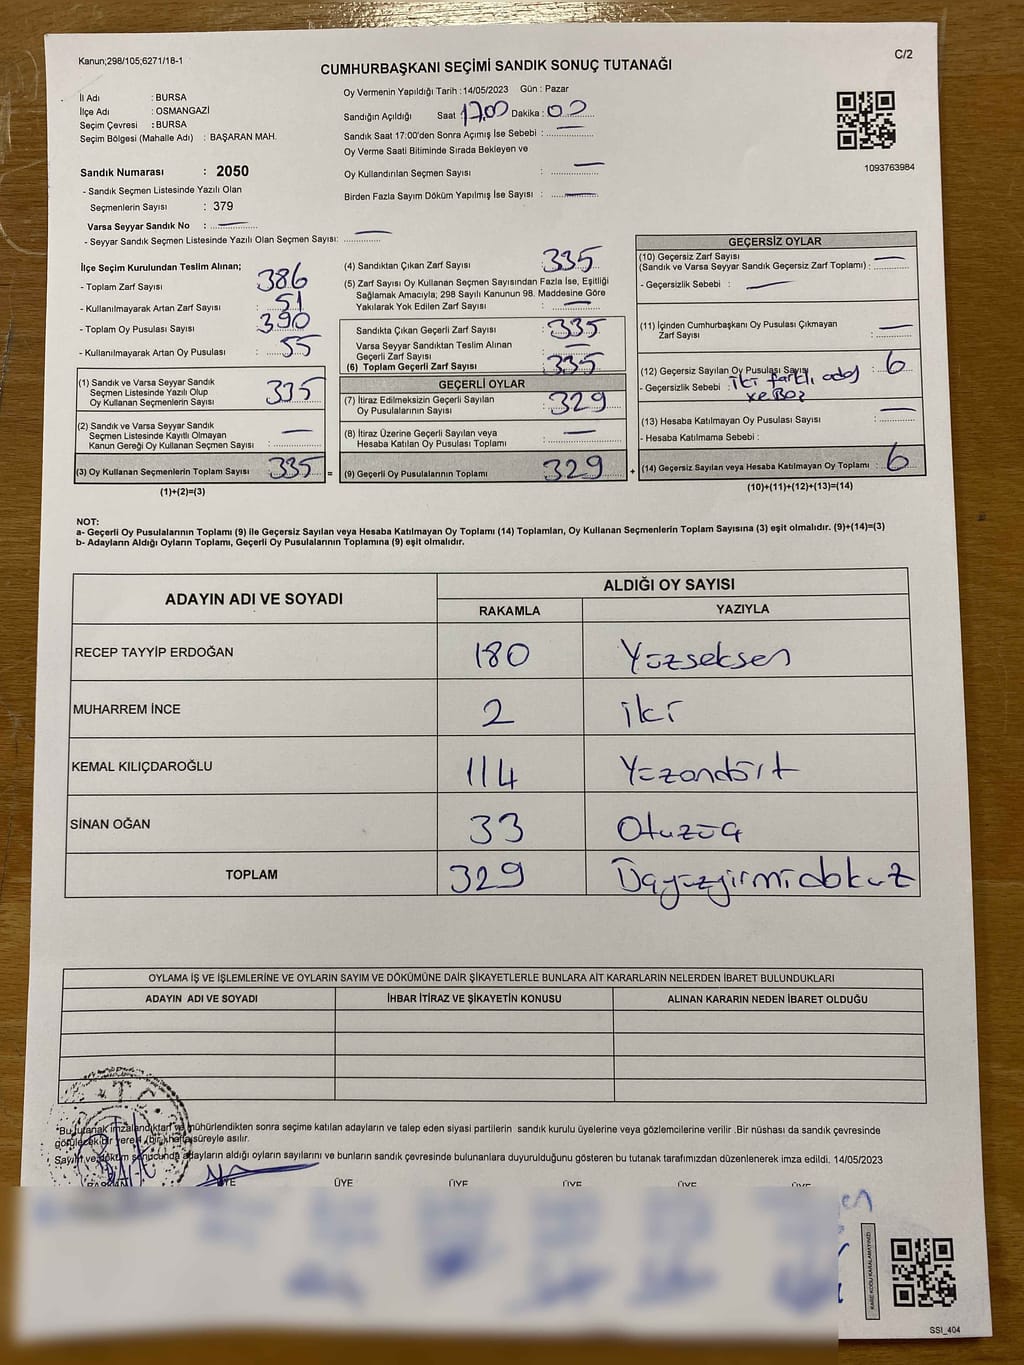 Kanun;298/105;6271/18-1
C/2
CUMHURBAŞKANI SEÇİMİ SANDIK SONUÇ TUTANAĞI
İl Adı : BURSA
İlçe Adı : OSMANGAZİ
Seçim Çevresi : BURSA
Seçim Bölgesi (Mahalle Adı) : BAŞARAN MAH.
Sandık Numarası : 2050
- Sandık Seçmen Listesinde Yazılı Olan
Seçmenlerin Sayısı : 379
Varsa Seyyar Sandık No :
- Seyyar Sandık Seçmen Listesinde Yazılı Olan Seçmen Sayısı:
Oy Vermenin Yapıldığı Tarih : 14/05/2023 Gün : Pazar
Sandığın Açıldığı Saat 17.00 Dakika : 00
Sandık Saat 17:00'den Sonra Açımış İse Sebebi :
Oy Verme Saati Bitiminde Sırada Bekleyen ve
Oy Kullandırılan Seçmen Sayısı :
Birden Fazla Sayım Döküm Yapılmış İse Sayısı :
1093763984
İlçe Seçim Kurulundan Teslim Alınan;
- Toplam Zarf Sayısı : 386
- Kullanılmayarak Artan Zarf Sayısı : 51
- Toplam Oy Pusulası Sayısı : 390
- Kullanılmayarak Artan Oy Pusulası : 55
(1) Sandık ve Varsa Seyyar Sandık
Seçmen Listesinde Yazılı Olup
Oy Kullanan Seçmenlerin Sayısı : 335
(2) Sandık ve Varsa Seyyar Sandık
Seçmen Listesinde Kayıtlı Olmayan
Kanun Gereği Oy Kullanan Seçmen Sayısı :
(3) Oy Kullanan Seçmenlerin Toplam Sayısı : 335 =
(1)+(2)=(3)
(4) Sandıktan Çıkan Zarf Sayısı : 335
(5) Zarf Sayısı Oy Kullanan Seçmen Sayısından Fazla İse, Eşitliği
Sağlamak Amacıyla; 298 Sayılı Kanunun 98. Maddesine Göre
Yakılarak Yok Edilen Zarf Sayısı :
Sandıkta Çıkan Geçerli Zarf Sayısı : 335
Varsa Seyyar Sandıktan Teslim Alınan
Geçerli Zarf Sayısı :
(6) Toplam Geçerli Zarf Sayısı : 335
GEÇERLİ OYLAR
(7) İtiraz Edilmeksizin Geçerli Sayılan
Oy Pusulalarının Sayısı : 329
(8) İtiraz Üzerine Geçerli Sayılan veya
Hesaba Katılan Oy Pusulası Toplamı :
(9) Geçerli Oy Pusulalarının Toplamı : 329 +
GEÇERSİZ OYLAR
(10) Geçersiz Zarf Sayısı
(Sandık ve Varsa Seyyar Sandık Geçersiz Zarf Toplamı) :
- Geçersizlik Sebebi :
(11) İçinden Cumhurbaşkanı Oy Pusulası Çıkmayan
Zarf Sayısı :
(12) Geçersiz Sayılan Oy Pusulası Sayısı : 6
- Geçersizlik Sebebi : iki farklı aday
(13) Hesaba Katılmayan Oy Pusulası Sayısı :
- Hesaba Katılmama Sebebi :
(14) Geçersiz Sayılan veya Hesaba Katılmayan Oy Toplamı : 6
(10)+(11)+(12)+(13)=(14)
NOT:
a- Geçerli Oy Pusulalarının Toplamı (9) ile Geçersiz Sayılan veya Hesaba Katılmayan Oy Toplamı (14) Toplamları, Oy Kullanan Seçmenlerin Toplam Sayısına (3) eşit olmalıdır. (9)+(14)=(3)
b- Adayların Aldığı Oyların Toplamı, Geçerli Oy Pusulalarının Toplamına (9) eşit olmalıdır.
ADAYIN ADI VE SOYADI
ALDIĞI OY SAYISI
RAKAMLA YAZIYLA
RECEP TAYYİP ERDOĞAN 180 Yüzseksen
MUHARREM İNCE 2 iki
KEMAL KILIÇDAROĞLU 114 Yüzondört
SİNAN OĞAN 33 Otuzüç
TOPLAM 329 Üçyüzyirmidokuz
OYLAMA İŞ VE İŞLEMLERİNE VE OYLARIN SAYIM VE DÖKÜMÜNE DAİR ŞİKAYETLERLE BUNLARA AİT KARARLARIN NELERDEN İBARET BULUNDUKLARI
ADAYIN ADI VE SOYADI İHBAR İTİRAZ VE ŞİKAYETİN KONUSU ALINAN KARARIN NEDEN İBARET OLDUĞU
T.C.
*Bu tutanak imzalandıktan ve mühürlendikten sonra seçime katılan adayların ve talep eden siyasi partilerin sandık kurulu üyelerine veya gözlemcilerine verilir .Bir nüshası da sandık çevresinde
görülecek bir yere 1 (bir) hafta süreyle asılır.
Sayım ve döküm sonucunda adayların aldığı oyların sayılarını ve bunların sandık çevresinde bulunanlara duyurulduğunu gösteren bu tutanak tarafımızdan düzenlenerek imza edildi. 14/05/2023
BAŞKAN ÜYE ÜYE ÜYE ÜYE ÜYE ÜYE
KARE KODU KARALAMAYINIZ!
SSI_404